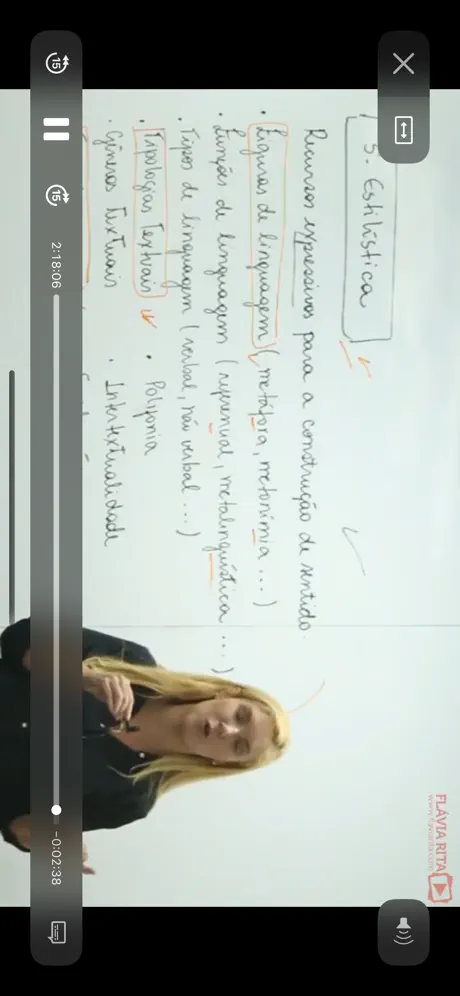 5. Estilística
Recursos expressivos para a construção de sentido.
• Figuras de linguagem (metáfora, metonímia ...)
• Função de linguagem (referencial, metalinguística ...)
• Tipos de linguagem (verbal, não verbal ...)
• Tipologias Textuais
• Polifonia
• Gêneros Textuais
• Intertextualidade
FLÁVIA RITA
www.flaviarita.com
15
15
2:18:06
-0:02:38